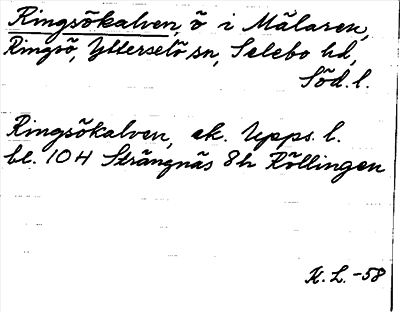 Ringsökalven, ö i Mälaren,
Ringsö, Ytterselö sn, Selebo hd,
Söd. l.
Ringsökalven, ek. Upps. l.
bl. 104 Strängnäs 8h Röllingen
K. L. -58